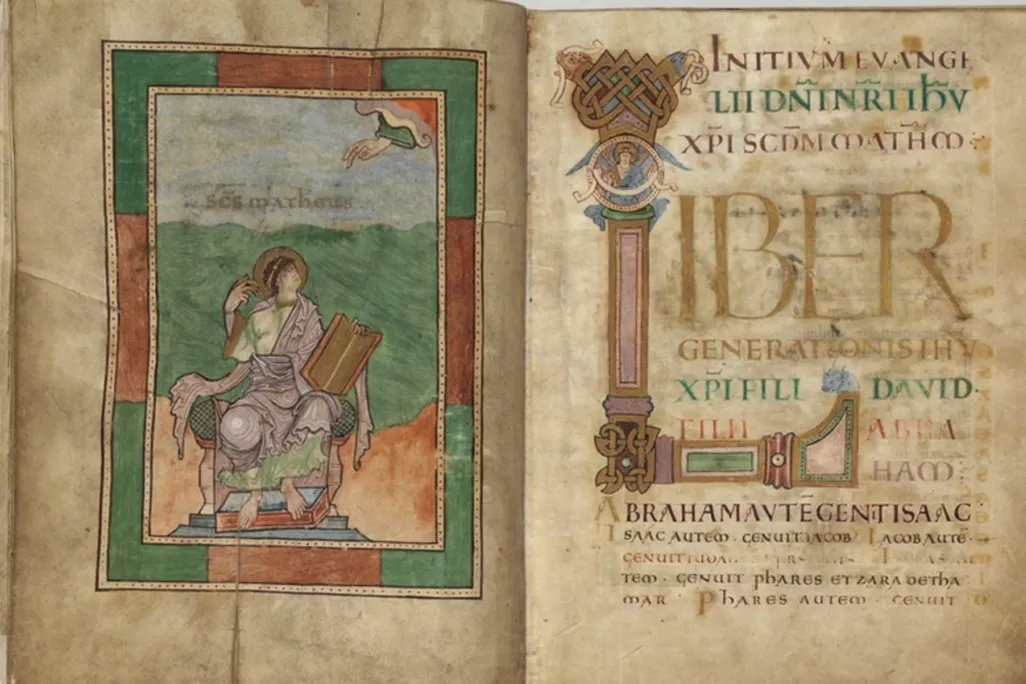 SC̅S matheus
INITIUM EVANGE
LII DN̅I NR̅I IHV
XP̅I SCD̅M MATHM ·
LIBER
GENERATIONIS IHV
XP̅I FILI DAVID ·
FILII ABRA
HAM :
ABRAHAM AUTĒ GENT ISAAC
ISAAC AUTEM · GENUIT IACOB IACOB AUTĒ ·
GENUIT IUDAM
TEM · GENUIT phARES ET ZARA DE ThA
MAR · PhARES AUTEM · GENUIT